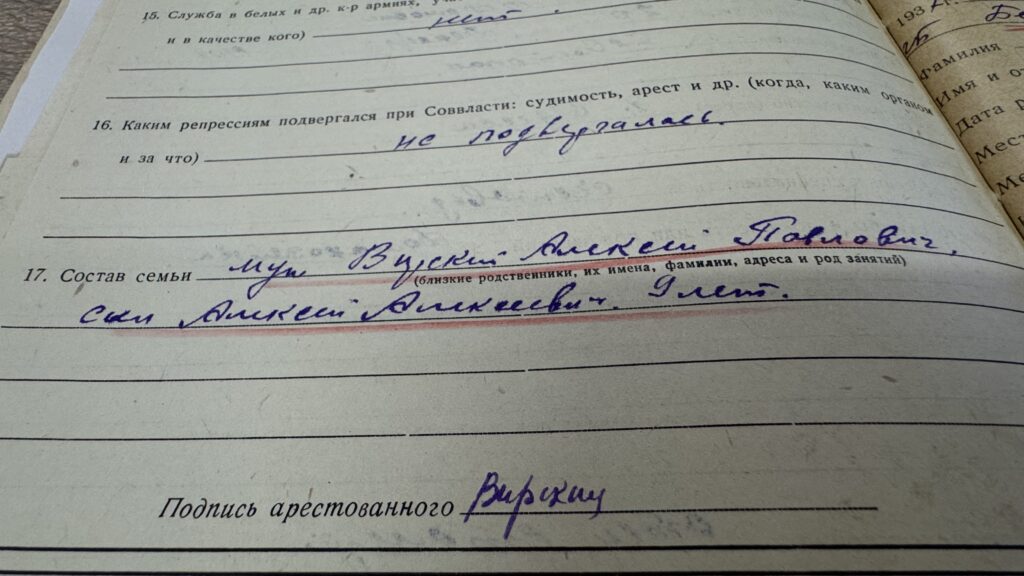 15. Служба в белых и др. к-р армиях,
и в качестве кого) нет.
16. Каким репрессиям подвергался при Соввласти: судимость, арест и др. (когда, каким органом
и за что) не подвергалась.
17. Состав семьи муж Вирский Алексей Павлович,
(близкие родственники, их имена, фамилии, адреса и род занятий)
сын Алексей Алексеевич. 9 лет.
Подпись арестованного
193
Фамилия
Имя и от
Дата р
Мест
Ме